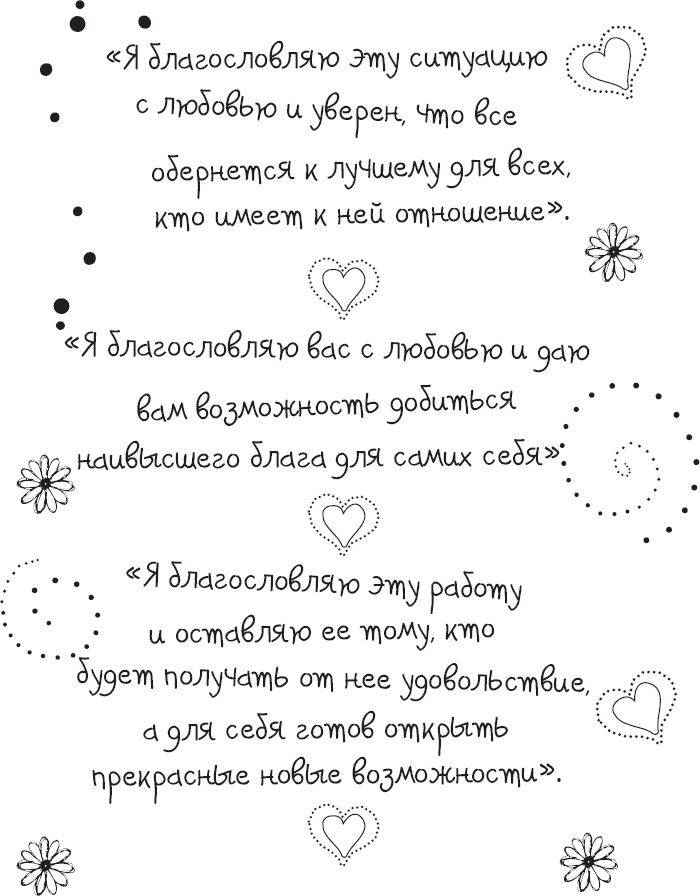 «Я благословляю эту ситуацию
с любовью и уверен, что все
обернется к лучшему для всех,
кто имеет к ней отношение».
«Я благословляю вас с любовью и даю
вам возможность добиться
наивысшего блага для самих себя»
«Я благословляю эту работу
и оставляю ее тому, кто
будет получать от нее удовольствие,
а для себя готов открыть
прекрасные новые возможности».